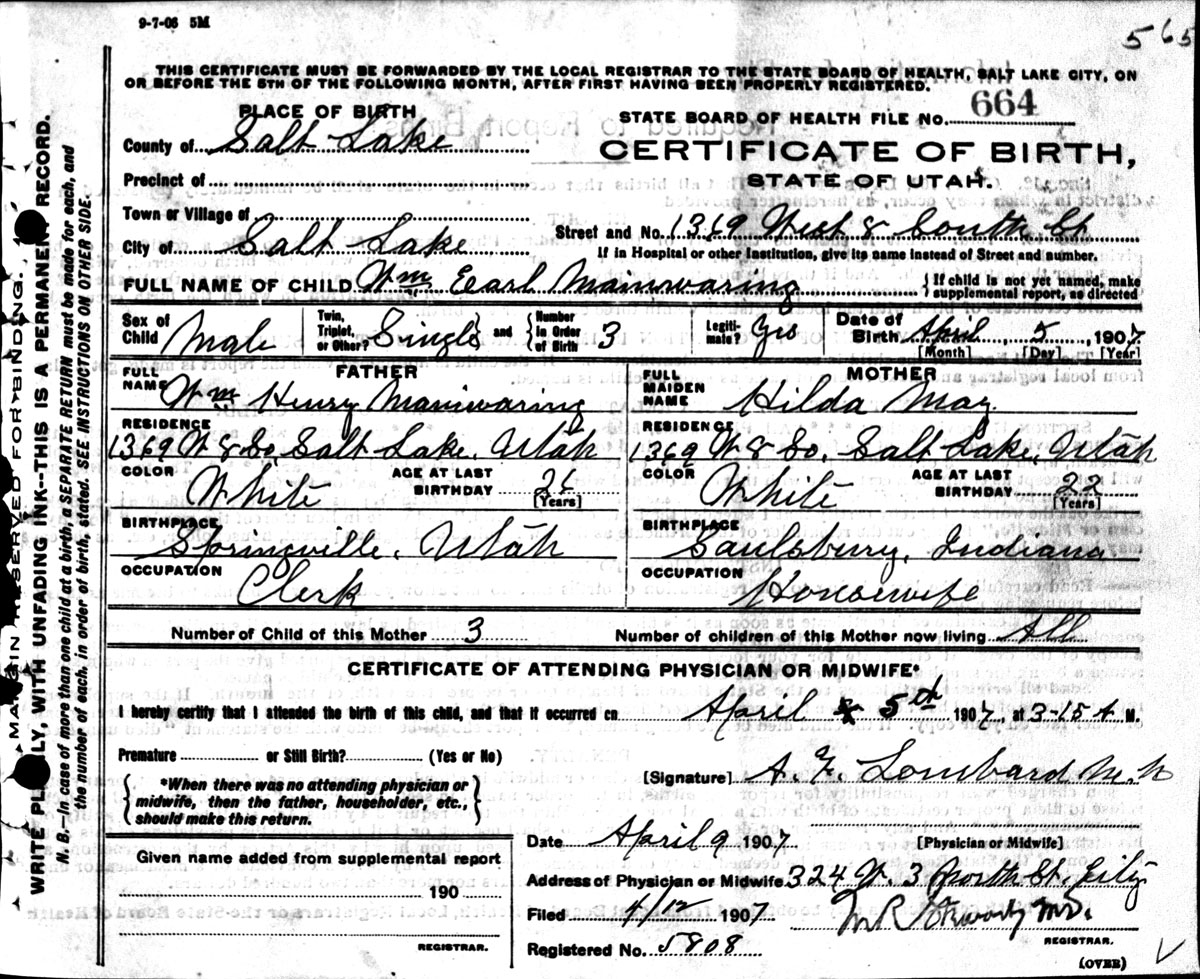 9-7-06 5M
565
THIS CERTIFICATE MUST BE FORWARDED BY THE LOCAL REGISTRAR TO THE STATE BOARD OF HEALTH, SALT LAKE CITY, ON
OR BEFORE THE 5TH OF THE FOLLOWING MONTH, AFTER FIRST HAVING BEEN PROPERLY REGISTERED.
PLACE OF BIRTH
STATE BOARD OF HEALTH FILE No. 664
County of Salt Lake
CERTIFICATE OF BIRTH,
Precinct of
STATE OF UTAH.
Town or Village of
Street and No. 1369 West 8 South St
City of Salt Lake
If in Hospital or other Institution, give its name instead of Street and number.
FULL NAME OF CHILD Wm Earl Mainwaring
{If child is not yet named, make supplemental report, as directed
Sex of Child Male
Twin, Triplet, or Other? Single
and
Number in Order of Birth 3
Legitimate? Yes
Date of Birth April 5, 1907
[Month] [Day] [Year]
FATHER
MOTHER
FULL NAME Wm Henry Mainwaring
FULL MAIDEN NAME Hilda May
RESIDENCE 1369 W 8 So, Salt Lake, Utah
RESIDENCE 1369 W 8 So. Salt Lake, Utah
COLOR White
AGE AT LAST BIRTHDAY [Years]
COLOR White
AGE AT LAST BIRTHDAY 22 [Years]
BIRTHPLACE Springville, Utah
BIRTHPLACE Saulsbury, Indiana
OCCUPATION Clerk
OCCUPATION Housewife
Number of Child of this Mother 3
Number of children of this Mother now living All
CERTIFICATE OF ATTENDING PHYSICIAN OR MIDWIFE*
I hereby certify that I attended the birth of this child, and that it occurred on April 5th 1907, at 3-15 A M.
Premature or Still Birth? (Yes or No)
[Signature] A. F. Lombard
{*When there was no attending physician or
midwife, then the father, householder, etc.,
should make this return.}
Date April 9 1907
[Physician or Midwife]
Given name added from supplemental report
Address of Physician or Midwife 324 W. 3 North St. City
190
Filed 4/12 1907
M.D.
REGISTRAR.
Registered No. 5808
REGISTRAR.
(OVER)
MARGIN RESERVED FOR BINDING.
WRITE PLAINLY, WITH UNFADING INK--THIS IS A PERMANENT RECORD.
N. B.—In case of more than one child at a birth, a SEPARATE RETURN must be made for each, and
the number of each, in order of birth, stated. SEE INSTRUCTIONS ON OTHER SIDE.